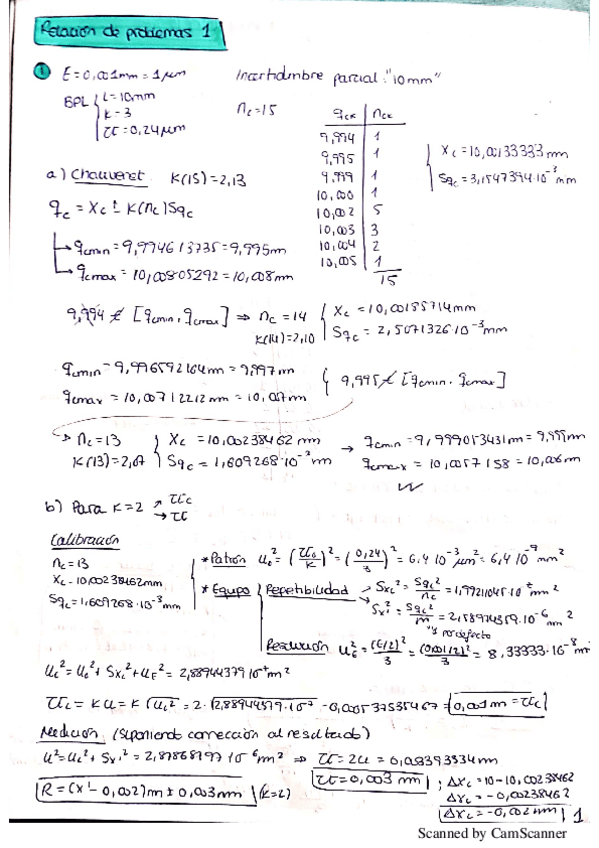 Relación de problemas 1
① E = 0,001mm = 1 μm
Incertidumbre parcial: "10mm"
BPL { L = 10mm
K = 3
U = 0,24 μm
nc = 15
qck | nck
9,994 | 1
9,995 | 1
9,999 | 1
10,000 | 1
10,002 | 5
10,003 | 3
10,004 | 2
10,005 | 1
15
{ Xc = 10,00133333 mm
Sqc = 3,1547394·10⁻³ mm
a) Chauvenet K(15) = 2,13
qc = Xc ± K(nc)Sqc
qcmin = 9,994613735 = 9,995m
qcmax = 10,00805292 = 10,008m
9,994 ∉ [qcmin, qcmax] ⇒ nc = 14
K(14) = 2,10
{ Xc = 10,00185714mm
Sqc = 2,5071326·10⁻³ mm
qcmin = 9,996592164m = 9,997m
qcmax = 10,00712212m = 10,007m
{ 9,995 ∉ [qcmin, qcmax]
nc = 13
K(13) = 2,07
{ Xc = 10,00238462 mm
Sqc = 1,609268·10⁻³ mm
→ qcmin = 9,999053431m = 9,999m
qcmax = 10,0057158 = 10,006m
b) Para K = 2 → Uc
→ U
Calibración
nc = 13
Xc = 10,00238462mm
Sqc = 1,609268·10⁻³ mm
* Patrón u₀² = (U₀/K)² = (0,24/3)² = 6,4·10⁻³ μm² = 6,4·10⁻⁹ mm²
* Equipo { Repetibilidad → Sxc² = Sqc²/nc = 1,99211045·10⁻⁷ mm²
Sx² = Sqc²/m = 2,58974359·10⁻⁶ mm²
por defecto
Resolución uE² = (E/2)²/3 = (0,001/2)²/3 = 8,33333·10⁻⁸ m
uc² = u₀² + Sxc² + uE² = 2,88944379·10⁻⁷ m²
Uc = Ku = K√uc² = 2·√2,88944379·10⁻⁷ = 0,001 m = Uc
Medición (suponiendo corrección al resultado)
u² = uc² + Sx² = 2,87868797·10⁻⁶ m² ⇒ U = 2u = 0,003393334m
U = 0,003 m
; Δxc = 10 - 10,00238462
Δxc = -0,00238462
Δxc = -0,002 m
R = (x' - 0,002)m ± 0,003mm (K=2)
1
Scanned by CamScanner